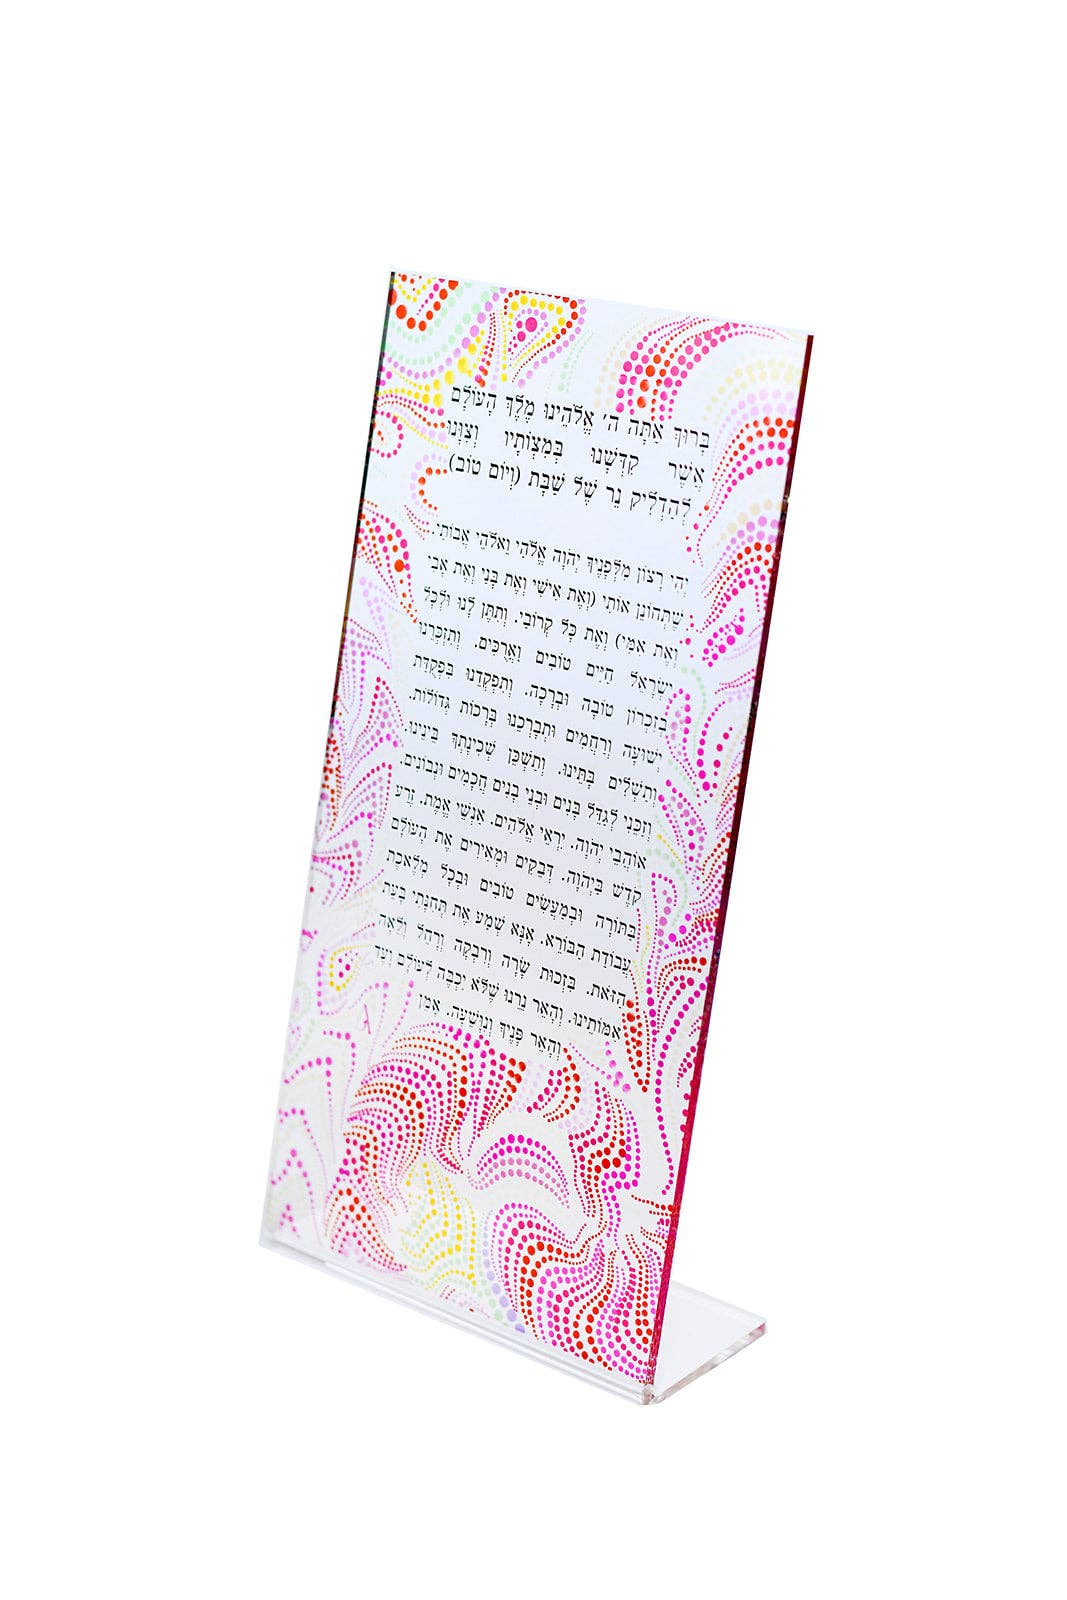 בָּרוּךְ אַתָּה ה׳ אֱלֹהֵינוּ מֶלֶךְ הָעוֹלָם
אֲשֶׁר קִדְּשָׁנוּ בְּמִצְוֹתָיו וְצִוָּנוּ
לְהַדְלִיק נֵר שֶׁל שַׁבָּת (וְיוֹם טוֹב)
יְהִי רָצוֹן מִלְּפָנֶיךָ יְהֹוָה אֱלֹהַי וֵאלֹהֵי אֲבוֹתַי.
שֶׁתְּחוֹנֵן אוֹתִי (וְאֶת אִישִׁי וְאֶת בָּנַי וְאֶת אָבִי
וְאֶת אִמִּי) וְאֶת כָּל קְרוֹבַי. וְתִתֵּן לָנוּ וּלְכָל
יִשְׂרָאֵל חַיִּים טוֹבִים וַאֲרֻכִּים. וְתִזְכְּרֵנוּ
בְּזִכְרוֹן טוֹבָה וּבְרָכָה. וְתִפְקְדֵנוּ בִּפְקֻדַּת
יְשׁוּעָה וְרַחֲמִים וּתְבָרְכֵנוּ בְּרָכוֹת גְּדוֹלוֹת.
וְתַשְׁלִים בָּתֵּינוּ. וְתַשְׁכֵּן שְׁכִינָתְךָ בֵּינֵינוּ.
וְזַכֵּנִי לְגַדֵּל בָּנִים וּבְנֵי בָנִים חֲכָמִים וּנְבוֹנִים.
אוֹהֲבֵי יְהֹוָה. יִרְאֵי אֱלֹהִים. אַנְשֵׁי אֱמֶת. זֶרַע
קֹדֶשׁ בַּיהֹוָה. דְּבֵקִים וּמְאִירִים אֶת הָעוֹלָם
בַּתּוֹרָה וּבְמַעֲשִׂים טוֹבִים וּבְכָל מְלֶאכֶת
עֲבוֹדַת הַבּוֹרֵא. אָנָּא שְׁמַע אֶת תְּחִנָּתִי בָּעֵת
הַזֹּאת. בִּזְכוּת שָׂרָה וְרִבְקָה וְרָחֵל וְלֵאָה
אִמּוֹתֵינוּ. וְהָאֵר נֵרֵנוּ שֶׁלֹּא יִכְבֶּה לְעוֹלָם וָעֶד
וְהָאֵר פָּנֶיךָ וְנִוָּשֵׁעָה. אָמֵן